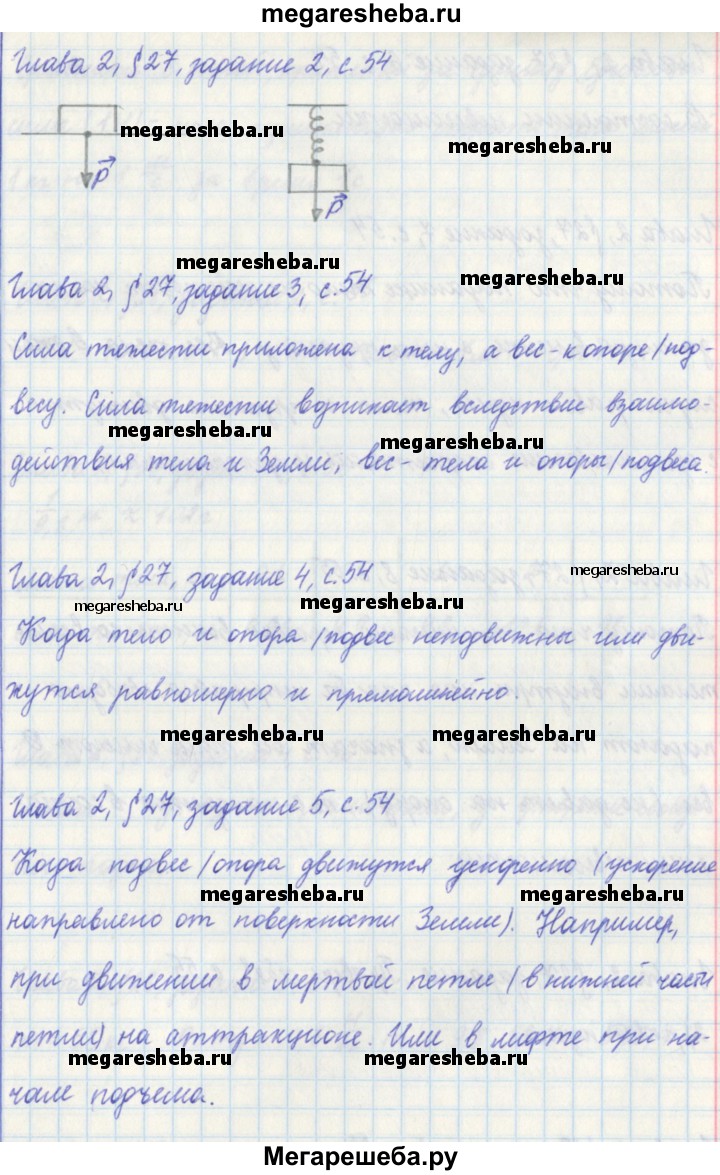 megaresheba.ru
Глава 2, § 27, задание 2, с. 54
megaresheba.ru
megaresheba.ru
P
P
megaresheba.ru
megaresheba.ru
Глава 2, § 27, задание 3, с. 54
Сила тяжести приложена к телу, а вес - к опоре/под-
весу. Сила тяжести возникает вследствие взаимо-
megaresheba.ru
megaresheba.ru
действия тела и Земли, вес - тела и опоры/подвеса.
Глава 2, § 27, задание 4, с. 54
megaresheba.ru
megaresheba.ru
megaresheba.ru
Когда тело и опора/подвес неподвижны или дви-
жутся равномерно и прямолинейно.
megaresheba.ru
megaresheba.ru
Глава 2, § 27, задание 5, с. 54
Когда подвес/опора движутся ускоренно (ускорение
megaresheba.ru
megaresheba.ru
направлено от поверхности Земли). Например,
при движении в мертвой петле (в нижней части
петли) на аттракционе. Или в лифте при на-
megaresheba.ru
megaresheba.ru
чале подъема.
Мегарешеба.ру